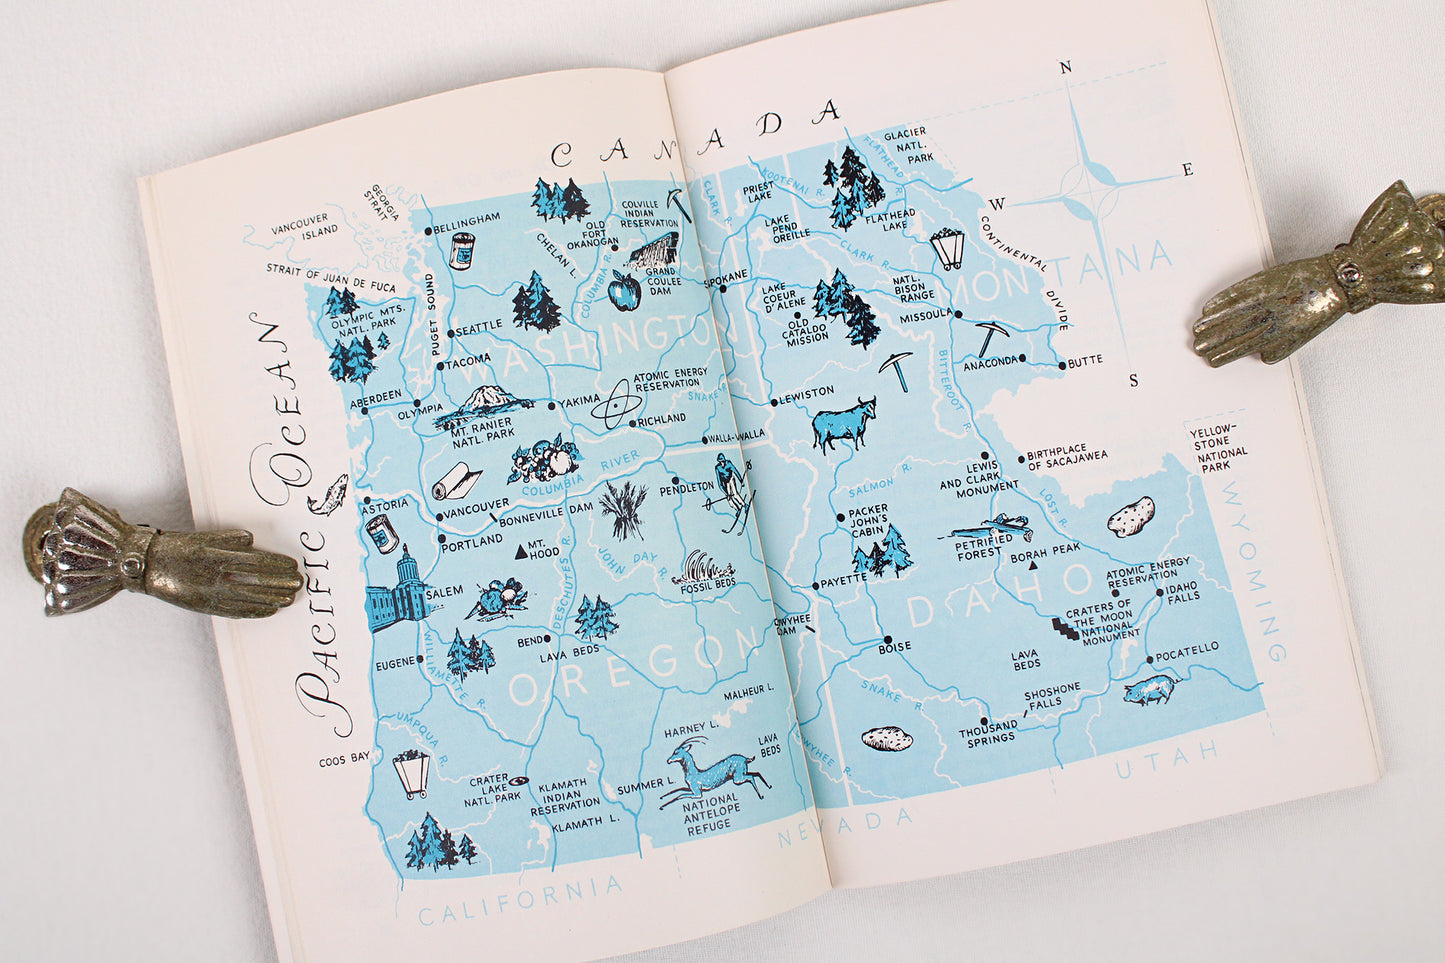 CANADA
N
W
E
S
VANCOUVER
ISLAND
GEORGIA
STRAIT
STRAIT OF JUAN DE FUCA
PACIFIC OCEAN
BELLINGHAM
PUGET SOUND
OLYMPIC MTS.
NATL. PARK
SEATTLE
TACOMA
ABERDEEN
OLYMPIA
WASHINGTON
CHELAN L.
OLD
FORT
OKANOGAN
COLVILLE
INDIAN
RESERVATION
COLUMBIA R.
GRAND
COULEE
DAM
SPOKANE
MT. RANIER
NATL. PARK
YAKIMA
ATOMIC ENERGY
RESERVATION
RICHLAND
SNAKE R.
WALLA-WALLA
COLUMBIA RIVER
ASTORIA
VANCOUVER
BONNEVILLE DAM
PORTLAND
MT.
HOOD
PENDLETON
SALEM
DESCHUTES R.
JOHN DAY R.
FOSSIL BEDS
EUGENE
WILLIAMETTE R.
BEND
LAVA BEDS
OREGON
UMPQUA R.
COOS BAY
CRATER
LAKE
NATL. PARK
KLAMATH
INDIAN
RESERVATION
KLAMATH L.
SUMMER L.
HARNEY L.
MALHEUR L.
LAVA
BEDS
NATIONAL
ANTELOPE
REFUGE
CALIFORNIA
NEVADA
UTAH
CLARK R.
PRIEST
LAKE
KOOTENAI R.
FLATHEAD R.
GLACIER
NATL.
PARK
LAKE
PEND
OREILLE
FLATHEAD
LAKE
CLARK R.
LAKE
COEUR
D'ALENE
OLD
CATALDO
MISSION
NATL.
BISON
RANGE
MISSOULA
MONTANA
CONTINENTAL DIVIDE
ANACONDA
BUTTE
BITTERROOT R.
LEWISTON
SALMON R.
LEWIS
AND CLARK
MONUMENT
BIRTHPLACE
OF SACAJAWEA
YELLOW-
STONE
NATIONAL
PARK
WYOMING
LOST R.
PACKER
JOHN'S
CABIN
PETRIFIED
FOREST
BORAH PEAK
PAYETTE
IDAHO
ATOMIC ENERGY
RESERVATION
IDAHO
FALLS
CRATERS OF
THE MOON
NATIONAL
MONUMENT
OWYHEE
DAM
BOISE
LAVA
BEDS
POCATELLO
SNAKE R.
SHOSHONE
FALLS
THOUSAND
SPRINGS
OWYHEE R.